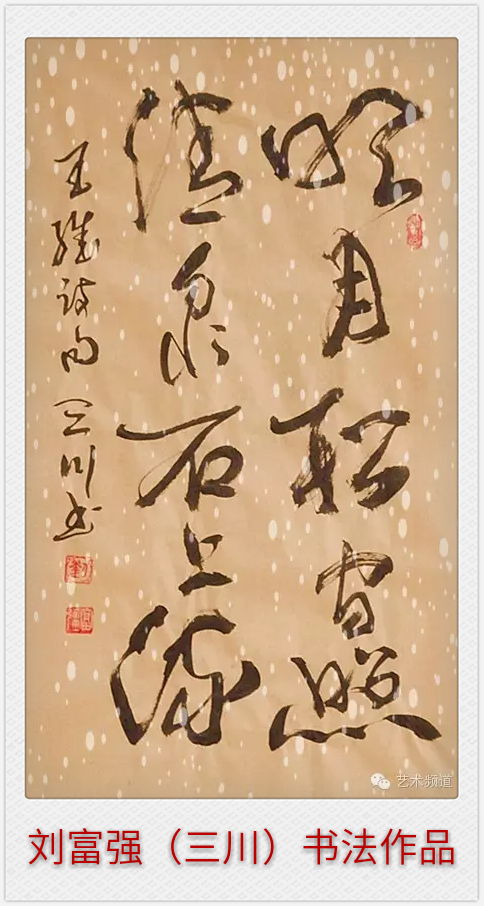 明月松间照
清泉石上流
王维诗句 三川书
艺术频道
刘富强（三川）书法作品